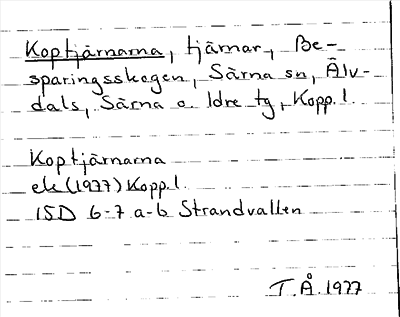 Koptjärnarna, tjärnar, Be-
sparingsskogen, Särna sn, Älv-
dals, Särna o. Idre tg, Kopp.l.
Koptjärnarna
ek (1977) Kopp.l.
15D 6-7 a-b Strandvallen
T.Å.1977